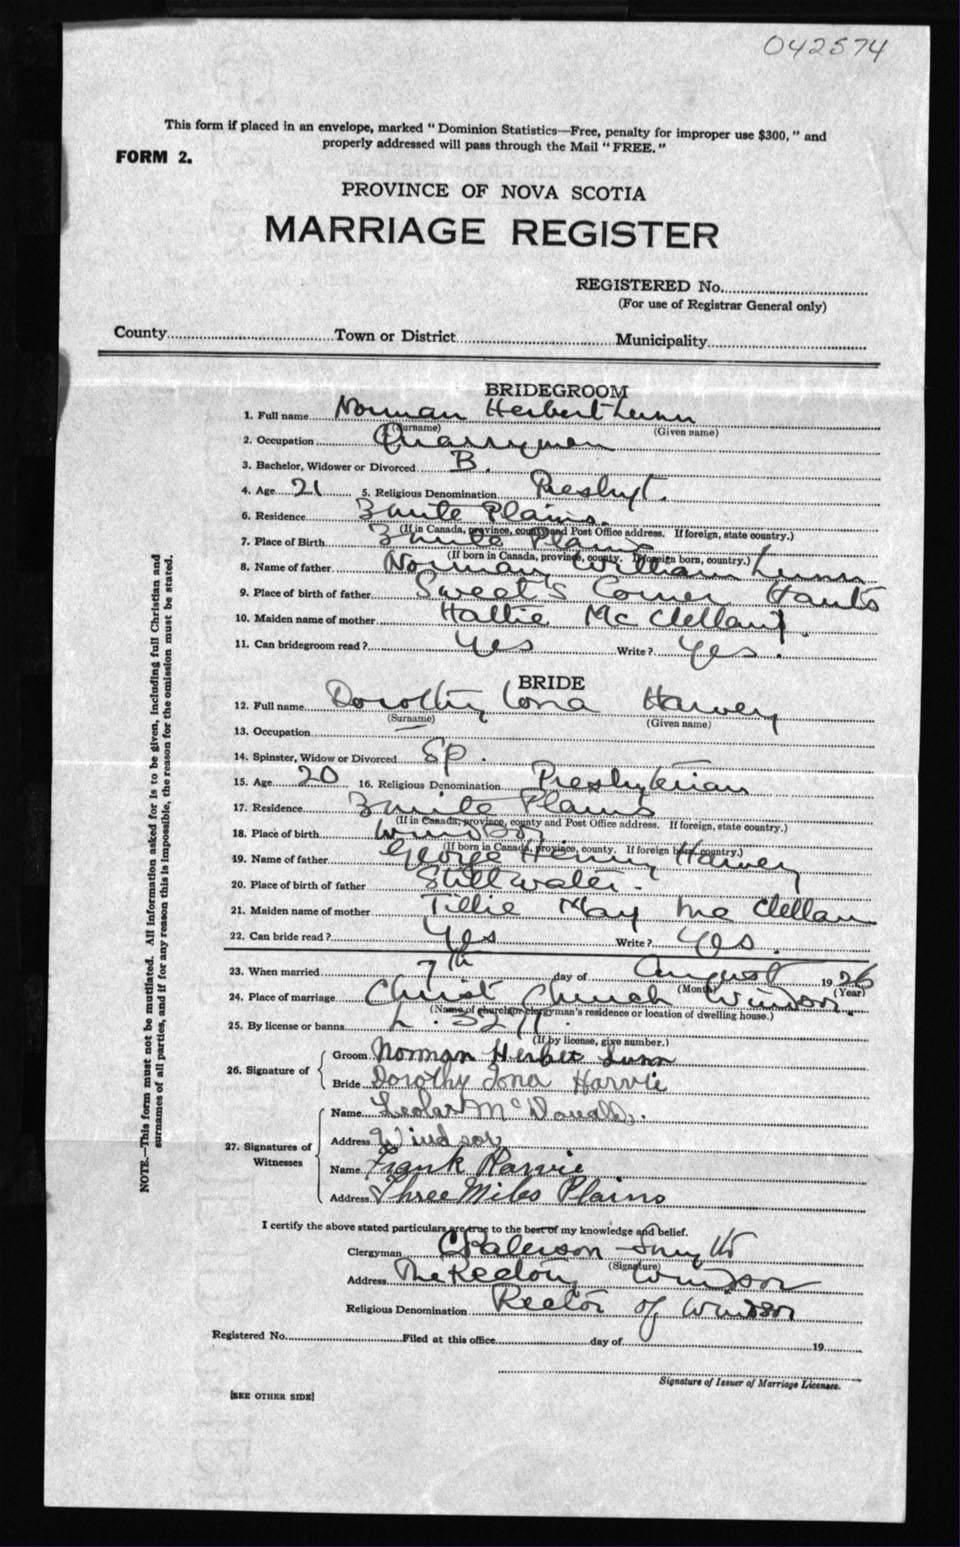 042574
This form if placed in an envelope, marked "Dominion Statistics—Free, penalty for improper use $300," and
properly addressed will pass through the Mail "FREE."
FORM 2.
PROVINCE OF NOVA SCOTIA
MARRIAGE REGISTER
REGISTERED No.
(For use of Registrar General only)
County Town or District Municipality
BRIDEGROOM
1. Full name Norman Herbert Lunn
(Surname) (Given name)
2. Occupation Quarryman
3. Bachelor, Widower or Divorced B.
4. Age 21 5. Religious Denomination Presbyt.
6. Residence 3 mile Plains.
(If in Canada, province, county and Post Office address. If foreign, state country.)
7. Place of Birth 3 mile Plains
(If born in Canada, province, county. If foreign born, country.)
8. Name of father Norman William Lunn
9. Place of birth of father Sweet's Corner Hants
10. Maiden name of mother Hattie McClellan
11. Can bridegroom read? Yes Write? Yes.
BRIDE
12. Full name Dorothy Iona Harvey
(Surname) (Given name)
13. Occupation
14. Spinster, Widow or Divorced Sp.
15. Age 20 16. Religious Denomination Presbyterian
17. Residence 3 mile Plains
(If in Canada, province, county and Post Office address. If foreign, state country.)
18. Place of birth Windsor
(If born in Canada, province, county. If foreign born, country.)
19. Name of father George Henry Harvey
20. Place of birth of father Stillwater.
21. Maiden name of mother Tillie May McClellan
22. Can bride read? Yes Write? Yes.
23. When married 7th day of August 1926
(Month) (Year)
24. Place of marriage Christ Church Windsor.
(Name of church or clergyman's residence or location of dwelling house.)
25. By license or banns L.
(If by license, give number.)
26. Signature of
Groom Norman Herbert Lunn
Bride Dorothy Iona Harvie
27. Signatures of Witnesses
Name
Address Windsor
Name Frank Harvie
Address Three Miles Plains
I certify the above stated particulars are true to the best of my knowledge and belief.
Clergyman
(Signature)
Address The Rectory Windsor
Religious Denomination Rector of Windsor
Registered No. Filed at this office day of 19
Signature of Issuer of Marriage Licenses.
[SEE OTHER SIDE]
NOTE.—This form must not be mutilated. All information asked for is to be given, including full Christian and
surnames of all parties, and if for any reason this is impossible, the reason for the omission must be stated.